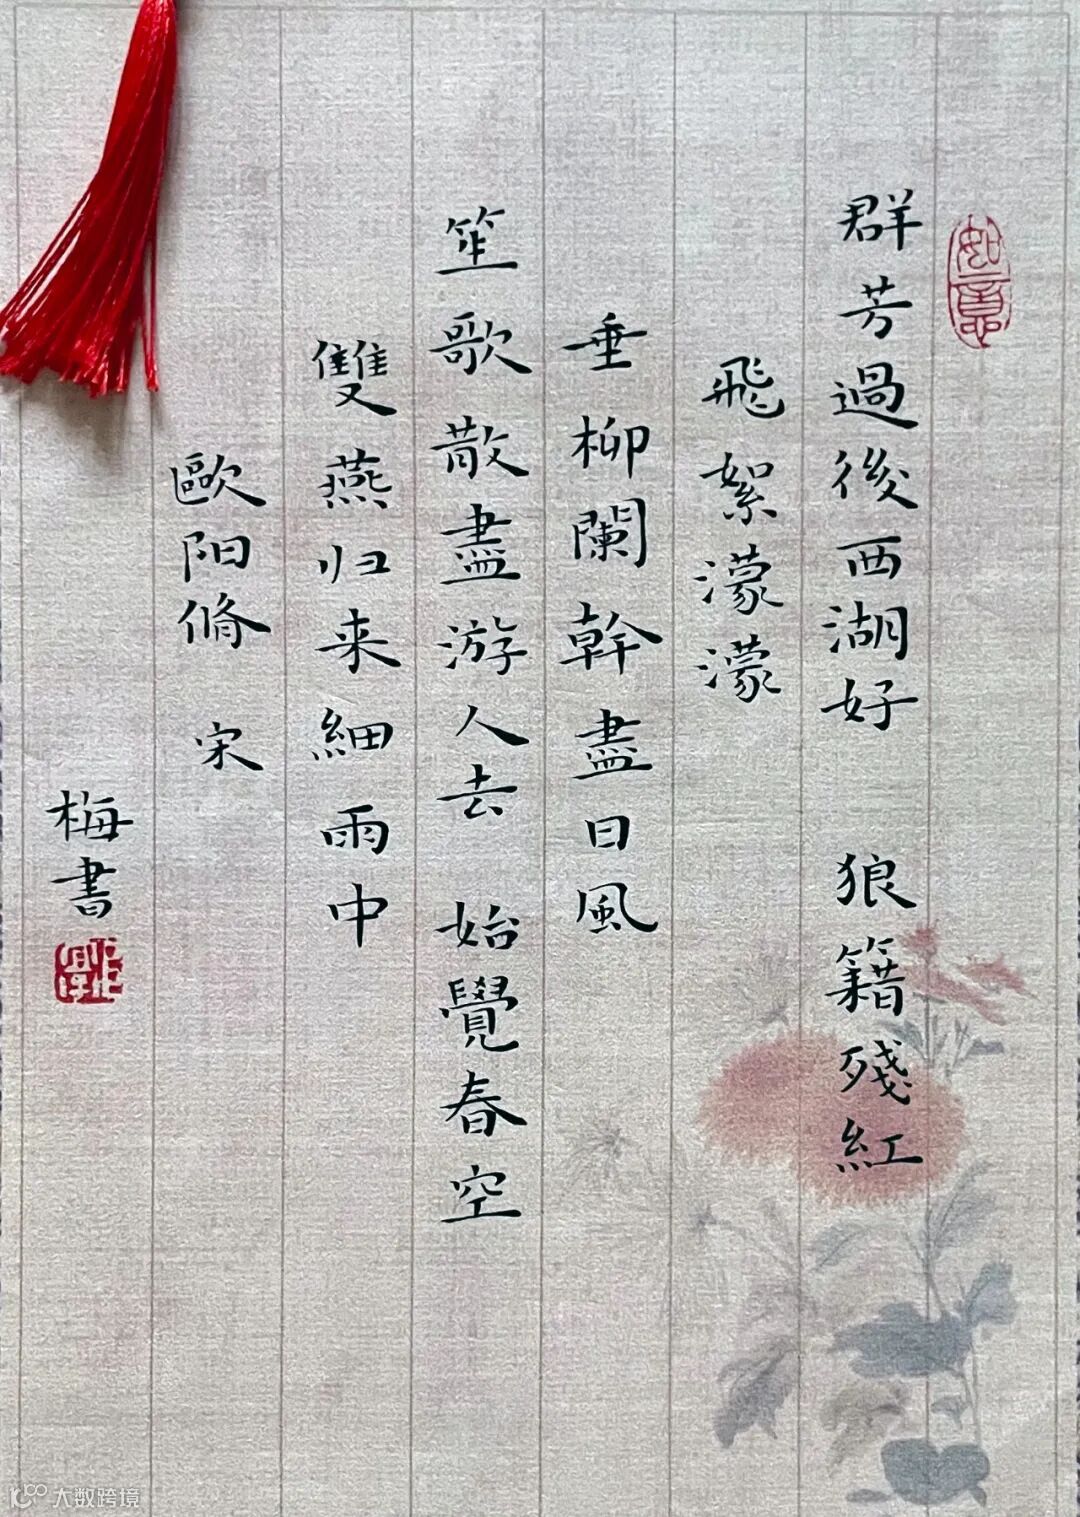 如意
群芳過後西湖好 狼籍殘紅
飛絮濛濛
垂柳闌幹盡日風
笙歌散盡游人去 始覺春空
雙燕归来細雨中
歐阳脩 宋
梅書
大数跨境